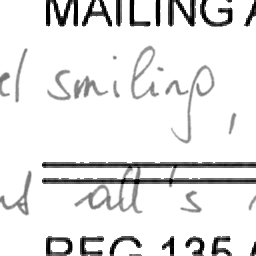 MAILING A
smiling,
all's
REG 135 A